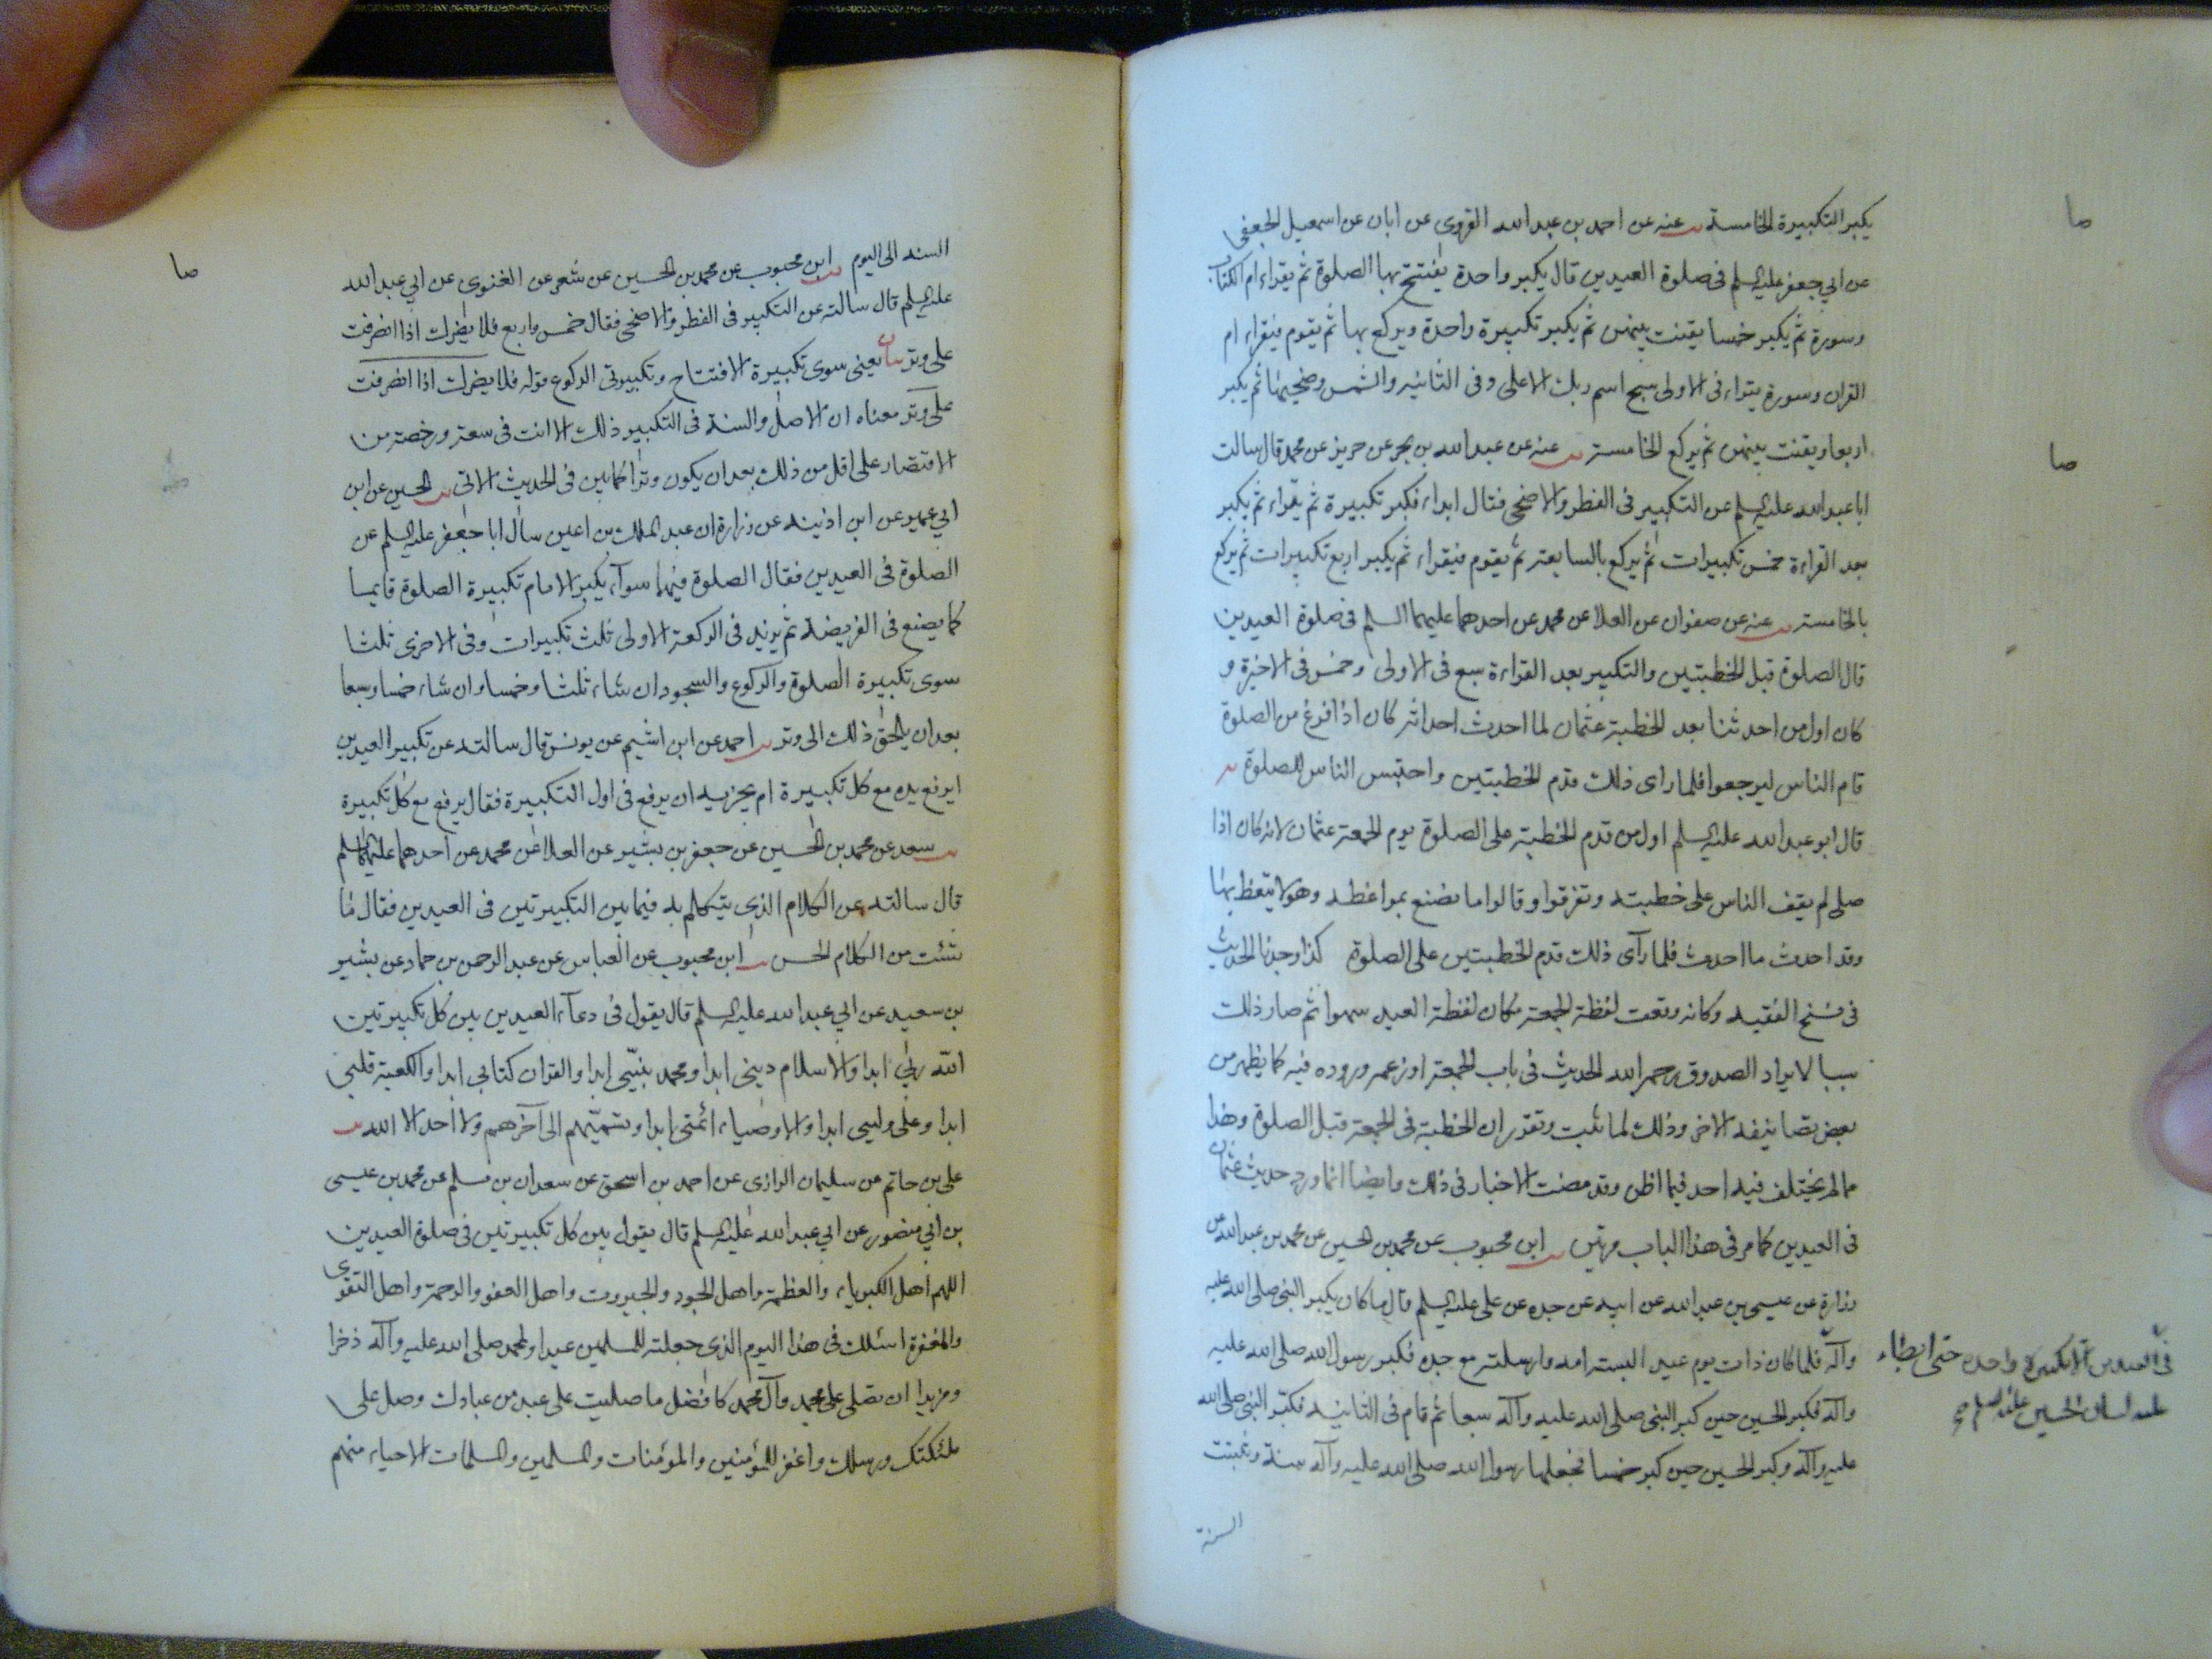 يكبر التكبيرة الخامسة يب عنه عن احمد بن عبد الله القروى عن ابان عن اسمعيل الجعفى
عن ابي جعفر عليه السلم فى صلوة العيدين قال يكبر واحدة يفتتح بها الصلوة ثم يقراء ام الكتاب
وسورة ثم يكبر خمسا يقنت بينهن ثم يكبر تكبيرة واحدة ويركع بها ثم يقوم فيقراء ام
القران وسورة يقراء فى الاولى سبح اسم ربك الاعلى وفى الثانيه والشمس وضحيها ثم يكبر
اربعا ويقنت بينهن ثم يركع الخامسة يب عنه عن عبد الله بن بحر عن حريز عن محمد قال سالت
ابا عبد الله عليه السلم عن التكبير فى الفطر والاضحى فقال ابداء فكبر تكبيرة ثم يقراء ثم يكبر
بعد القراءة خمس تكبيرات ثم يركع بالسابعة ثم يقوم فيقراء ثم يكبر اربع تكبيرات ثم يركع
بالخامسة يب عنه عن صفوان عن العلا عن محمد عن احدهما عليهما السلم فى صلوة العيدين
قال الصلوة قبل الخطبتين والتكبير بعد القراءة سبع فى الاولى وخمس فى الاخيرة و
كان اول من احدثنا بعد الخطبة عثمان لما احدث احداثه كان اذا فرغ من الصلوة
قام الناس ليرجعوا فلما راى ذلك قدم الخطبتين واحتبس الناس للصلوة يه
قال ابو عبد الله عليه السلم اول من قدم الخطبة على الصلوة يوم الجمعة عثمان لانه كان اذا
صلى لم يقف الناس على خطبته وتفرقوا وقالوا ما نصنع بمواعظه وهو لا يتعظ بها
وقد احدث ما احدث فلما رآى ذلك قدم الخطبتين على الصلوة كذا وجدنا الحديث
فى نسخ الفقيه وكانه وقعت لفظة الجمعة مكان لفظة العيد سهوا ثم صار ذلك
سببا لايراد الصدوق رحمه الله الحديث فى باب الجمعة او زعمه وروده فيه كما يظهر من
بعض تصانيفه الاخر وذلك لما ثبت وتقرر ان الخطبة فى الجمعة قبل الصلوة وهذا
مما لم يختلف فيه احد فيما اظن وقد مضت الاخبار فى ذلك وايضا انما ورد حديث عثمان
فى العيدين كما مر فى هذا الباب مرتين يب ابن محبوب عن محمد بن الحسين عن محمد بن عبد الله عن
زرارة عن عيسى بن عبد الله عن ابيه عن جده عن على عليه السلم قال ما كان يكبر النبى صلى الله عليه
وآله فلما كان ذات يوم عيد البسته امه وارسلته مع جده فكبر رسول الله صلى الله عليه
وآله فكبر الحسين حين كبر النبى صلى الله عليه وآله سبعا ثم قام فى الثانيه فكبر النبى صلى الله
عليه وآله وكبر الحسين حين كبر خمسا فجعلها رسول الله صلى الله عليه وآله سنة وثبتت
السنة
صا
صا
فى العيدين الا تكبيرة واحدة حتى ابطاء
عليه لسان الحسين عليه السلم صح
السنه الى اليوم يب ابن محبوب عن محمد بن الحسين عن شعر عن الغنوى عن ابي عبد الله
عليه السلم قال سالته عن التكبير فى الفطر والاضحى فقال خمس واربع فلا يضرك اذا انصرفت
على وتر بيان يعنى سوى تكبيرة الافتتاح وتكبيرتى الركوع قوله فلا يضرك اذا انصرفت
على وتر معناه ان الاصل والسنة فى التكبير ذلك الا انت فى سعة ورخصة من
الاقتصار على اقل من ذلك بعد ان يكون وترا كما يبين فى الحديث الاتى يب الحسين عن ابن
ابي عمير عن ابن اذنيه عن زرارة ان عبد الملك بن اعين سال ابا جعفر عليه السلم عن
الصلوة فى العيدين فقال الصلوة فيهما سوآء يكبر الامام تكبيرة الصلوة قايما
كما يصنع فى الفريضة ثم يزيد فى الركعة الاولى ثلث تكبيرات وفى الاخرى ثلثا
سوى تكبيرة الصلوة والركوع والسجود ان شاء ثلثا وخمسا وان شاء خمسا وسبعا
بعد ان يلحق ذلك الى وتر يب احمد عن ابن اشيم عن يونس قال سالته عن تكبير العيدين
ايرفع يده مع كل تكبيرة ام يجزيه ان يرفع فى اول التكبيرة فقال يرفع مع كل تكبيرة
يب سعد عن محمد بن الحسين عن جعفر بن بشير عن العلا عن محمد عن احدهما عليهما السلم
قال سالته عن الكلام الذى يتكلم به فيما بين التكبيرتين فى العيدين فقال ما
شئت من الكلام الحسن يب ابن محبوب عن العباس عن عبد الرحمن بن حماد عن بشير
بن سعيد عن ابي عبد الله عليه السلم قال يقول فى دعآء العيدين بين كل تكبيرتين
الله ربي ابدا والاسلام دينى ابدا ومحمد نبيى ابدا والقران كتابى ابدا والكعبة قبلتى
ابدا وعلى وليى ابدا والاوصياء ائمتى ابدا وتسميهم الى آخرهم ولا احد الا الله يب
على بن حاتم عن سليمان الرازى عن احمد بن اسحق عن سعدان بن مسلم عن محمد بن عيسى
بن ابي منصور عن ابي عبد الله عليه السلم قال يقول بين كل تكبيرتين فى صلوة العيدين
اللهم اهل الكبرياء والعظمة واهل الجود والجبروت واهل العفو والرحمة واهل التقوى
والمغفرة اسئلك فى هذا اليوم الذى جعلته للمسلمين عيدا ولمحمد صلى الله عليه وآله ذخرا
ومزيدا ان تصلى على محمد وآل محمد كافضل ما صليت على عبد من عبادك وصل على
ملئكتك ورسلك واغفر للمؤمنين والمؤمنات والمسلمين والمسلمات الاحياء منهم
صا